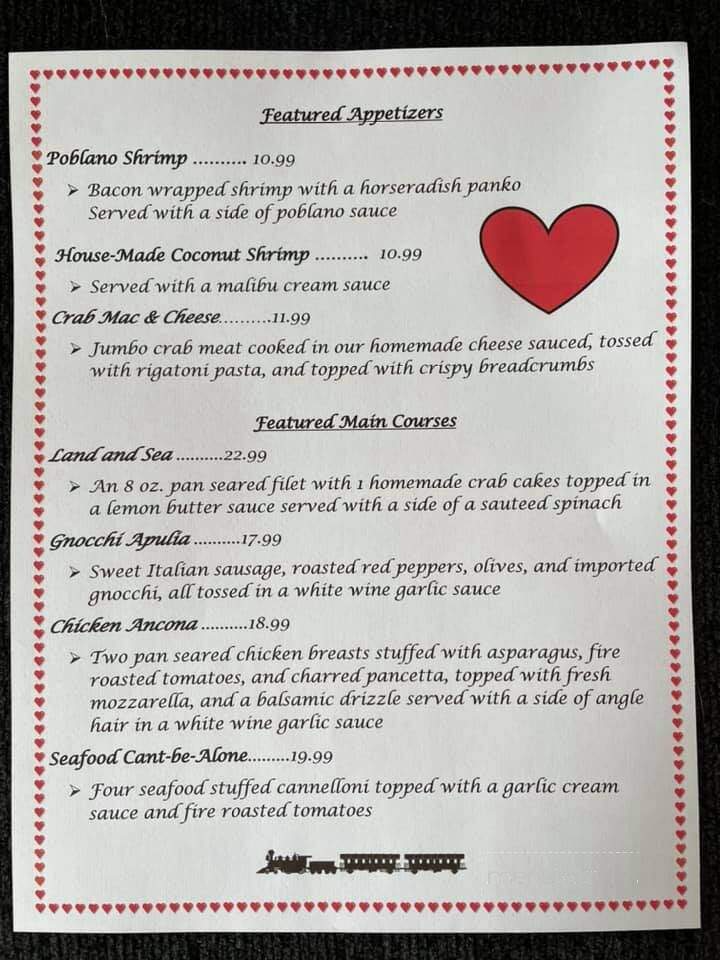 Featured Appetizers
Poblano Shrimp .......... 10.99
➢ Bacon wrapped shrimp with a horseradish panko
Served with a side of poblano sauce
House-Made Coconut Shrimp .......... 10.99
➢ Served with a malibu cream sauce
Crab Mac & Cheese..........11.99
➢ Jumbo crab meat cooked in our homemade cheese sauced, tossed
with rigatoni pasta, and topped with crispy breadcrumbs
Featured Main Courses
Land and Sea ..........22.99
➢ An 8 oz. pan seared filet with 1 homemade crab cakes topped in
a lemon butter sauce served with a side of a sauteed spinach
Gnocchi Apulia ..........17.99
➢ Sweet Italian sausage, roasted red peppers, olives, and imported
gnocchi, all tossed in a white wine garlic sauce
Chicken Ancona ..........18.99
➢ Two pan seared chicken breasts stuffed with asparagus, fire
roasted tomatoes, and charred pancetta, topped with fresh
mozzarella, and a balsamic drizzle served with a side of angle
hair in a white wine garlic sauce
Seafood Cant-be-Alone.........19.99
➢ Four seafood stuffed cannelloni topped with a garlic cream
sauce and fire roasted tomatoes